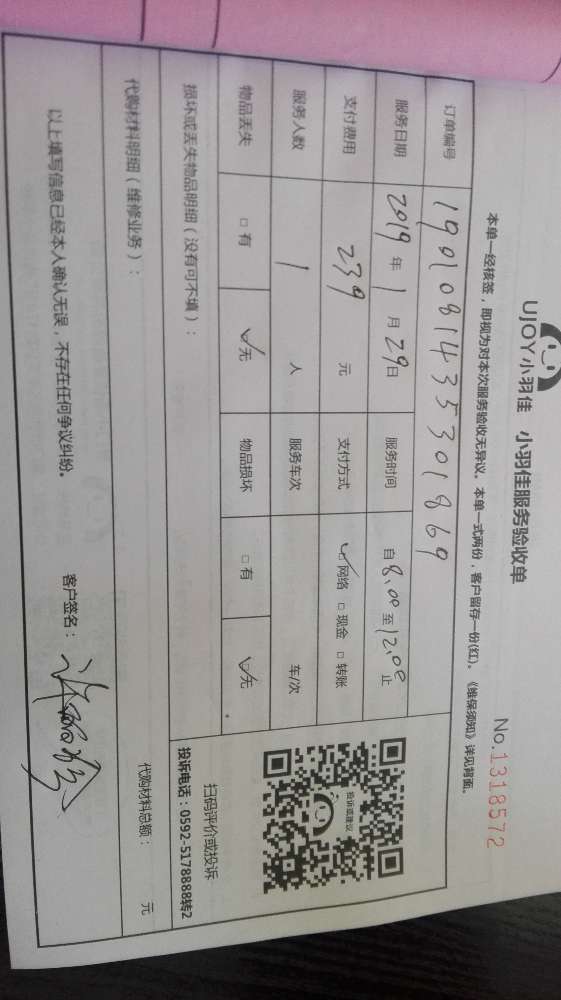 UJOY小羽佳 小羽佳服务验收单
No.1318572
本单一经核签，即视为对本次服务验收无异议。本单一式两份，客户留存一份(红)。《维保须知》详见背面。
订单编号 1901081435301869
服务日期 2019年1月29日 服务时间 自8:00至12:00止
支付费用 239元 支付方式 ☑网络 □现金 □转账
服务人数 1人 服务车次 车/次
物品丢失 □有 ☑无 物品损坏 □有 ☑无
损坏或丢失物品明细（没有可不填）：
投诉或建议
扫码评价或投诉
投诉电话：0592-5178888转2
代购材料明细（维修业务）： 代购材料总额： 元
以上填写信息已经本人确认无误，不存在任何争议纠纷。 客户签名：